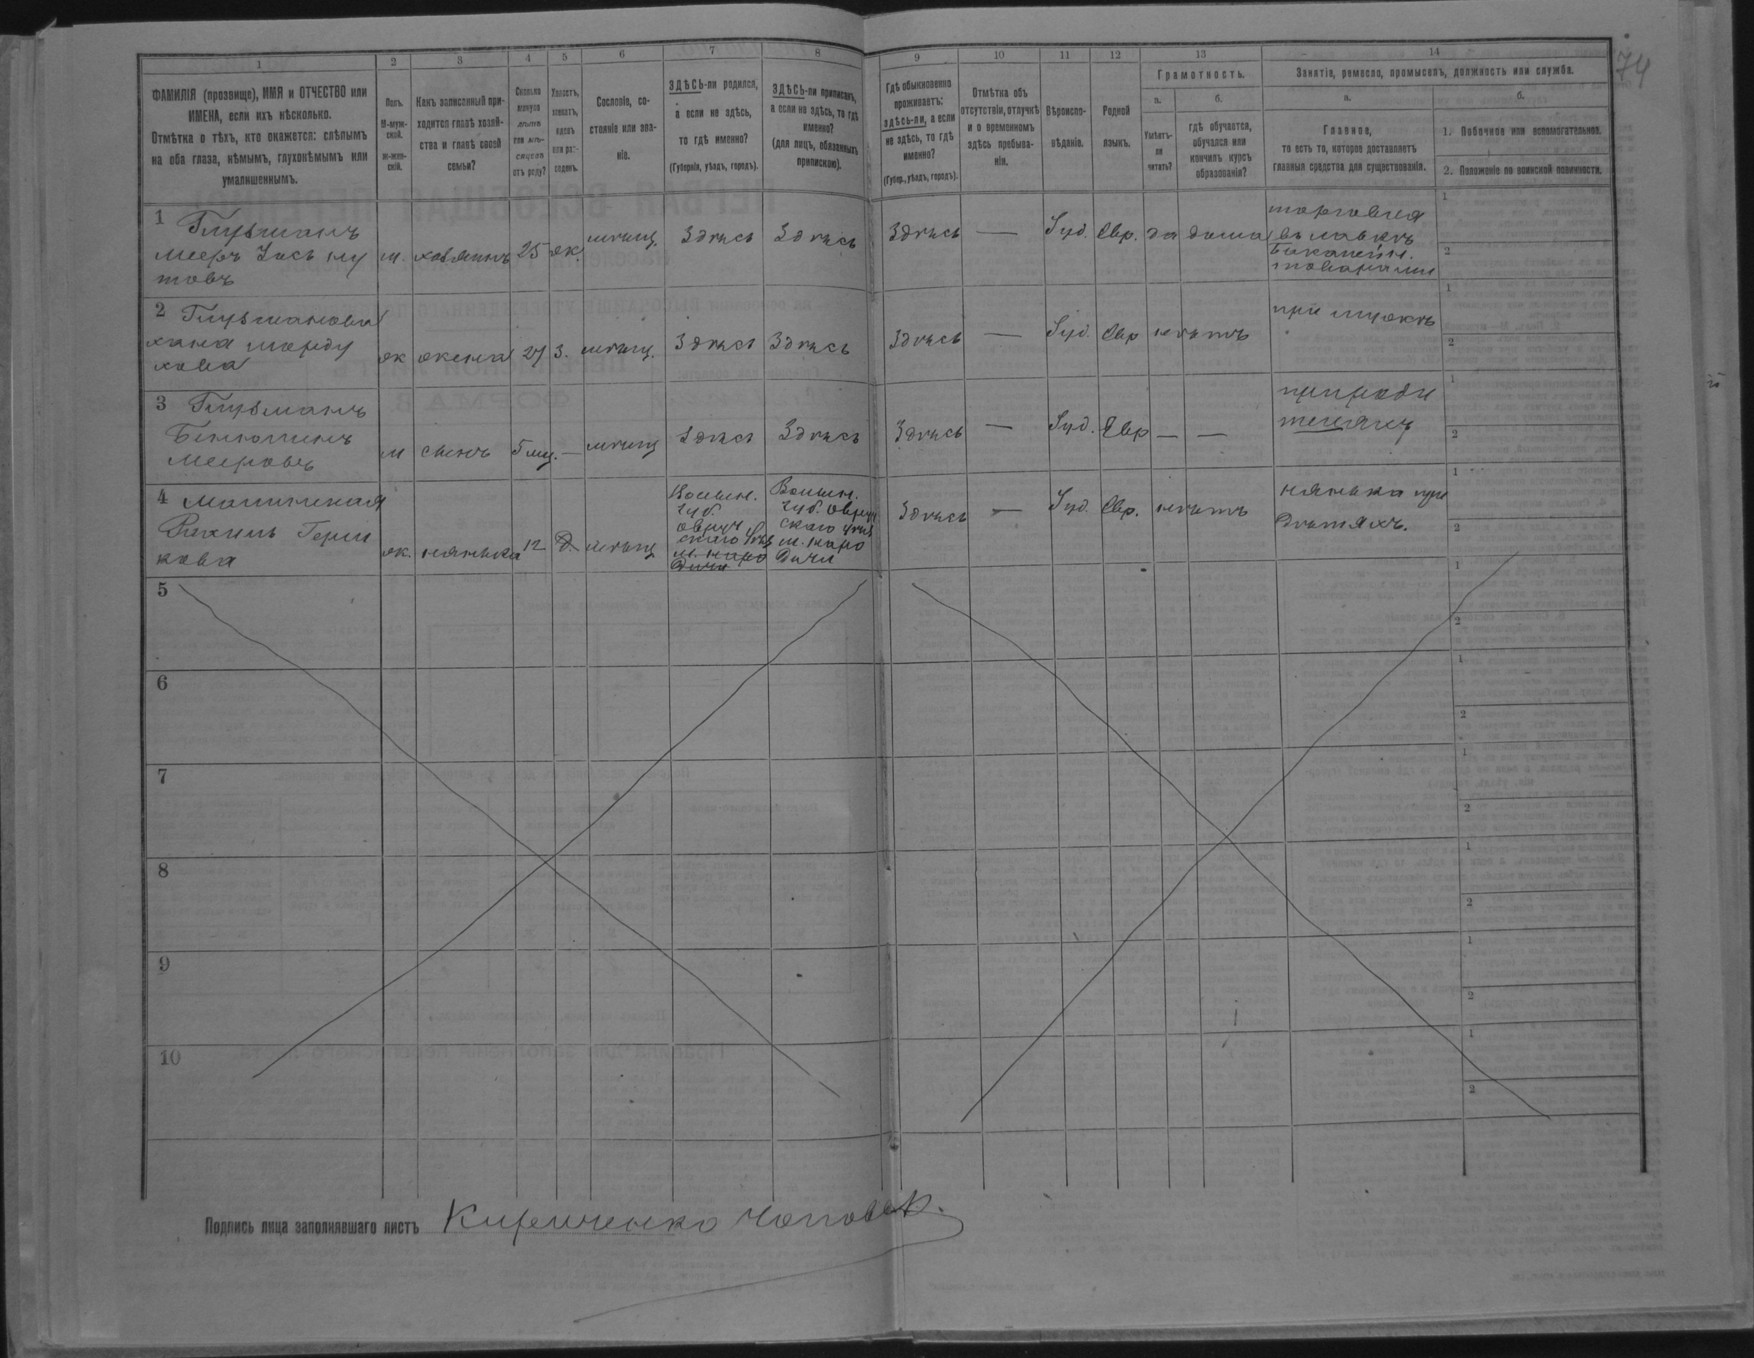 74
1 2 3 4 5 6 7 8 9 10 11 12 13 14
ФАМИЛІЯ (прозвище), ИМЯ и ОТЧЕСТВО или ИМЕНА, если ихъ нѣсколько.
Отмѣтка о тѣхъ, кто окажется: слѣпымъ на оба глаза, нѣмымъ, глухонѣмымъ или умалишеннымъ.
Полъ. М-мужской. ж-женскій.
Какъ записанный приходится главѣ хозяйства и главѣ своей семьи?
Сколько минуло лѣтъ или мѣсяцевъ отъ роду?
Холостъ, женатъ, вдовъ или разведенъ.
Сословіе, состояніе или званіе.
ЗДѢСЬ-ли родился, а если не здѣсь, то гдѣ именно?
(Губернія, уѣздъ, городъ).
ЗДѢСЬ-ли приписанъ, а если не здѣсь, то гдѣ именно?
(для лицъ, обязанныхъ припискою).
Гдѣ обыкновенно проживаетъ: здѣсь-ли, а если не здѣсь, то гдѣ именно?
(Губер., уѣздъ, городъ).
Отмѣтка объ отсутствіи, отлучкѣ и о временномъ здѣсь пребываніи.
Вѣроисповѣданіе.
Родной языкъ.
Грамотность.
а. Умѣетъ-ли читать?
б. гдѣ обучается, обучался или кончилъ курсъ образованія?
Занятія, ремесло, промыселъ, должность или служба.
а. Главное,
то есть то, которое доставляетъ главныя средства для существованія.
б.
1. Побочное или вспомогательное.
2. Положеніе по воинской повинности.
1 Глузманъ
Мееръ
товъ
м. хозяинъ 25 ж. мѣщ. Здѣсь Здѣсь Здѣсь — Iуд. Евр. да дома
торговля
въ лавкѣ
Бакалейн.
товарами
1
2
2 Глузманова
Хана Морду
хова
ж жена 21 З. мѣщ. Здѣсь Здѣсь Здѣсь — Iуд. Евр нѣтъ
при мужѣ
1
2
3 Глузманъ
Бенюминъ
Мееровъ
м сынъ 5 мц. — мѣщ Здѣсь Здѣсь Здѣсь — Iуд. Евр — —
при роди
теляхъ
1
2
4
Рахиль Герш
кова
ж. нянька 12 д. мѣщ
Волын.
губ.
Овруч
скаго уѣз
м. Наро
дичи
Волын.
губ. Овруч
скаго уѣз
м. Наро
дичи
Здѣсь — Iуд. Евр. нѣтъ
нянька при
дѣтяхъ.
1
2
5
1
2
6
1
2
7
1
2
8
1
2
9
1
2
10
1
2
Подпись лица заполнявшаго листъ